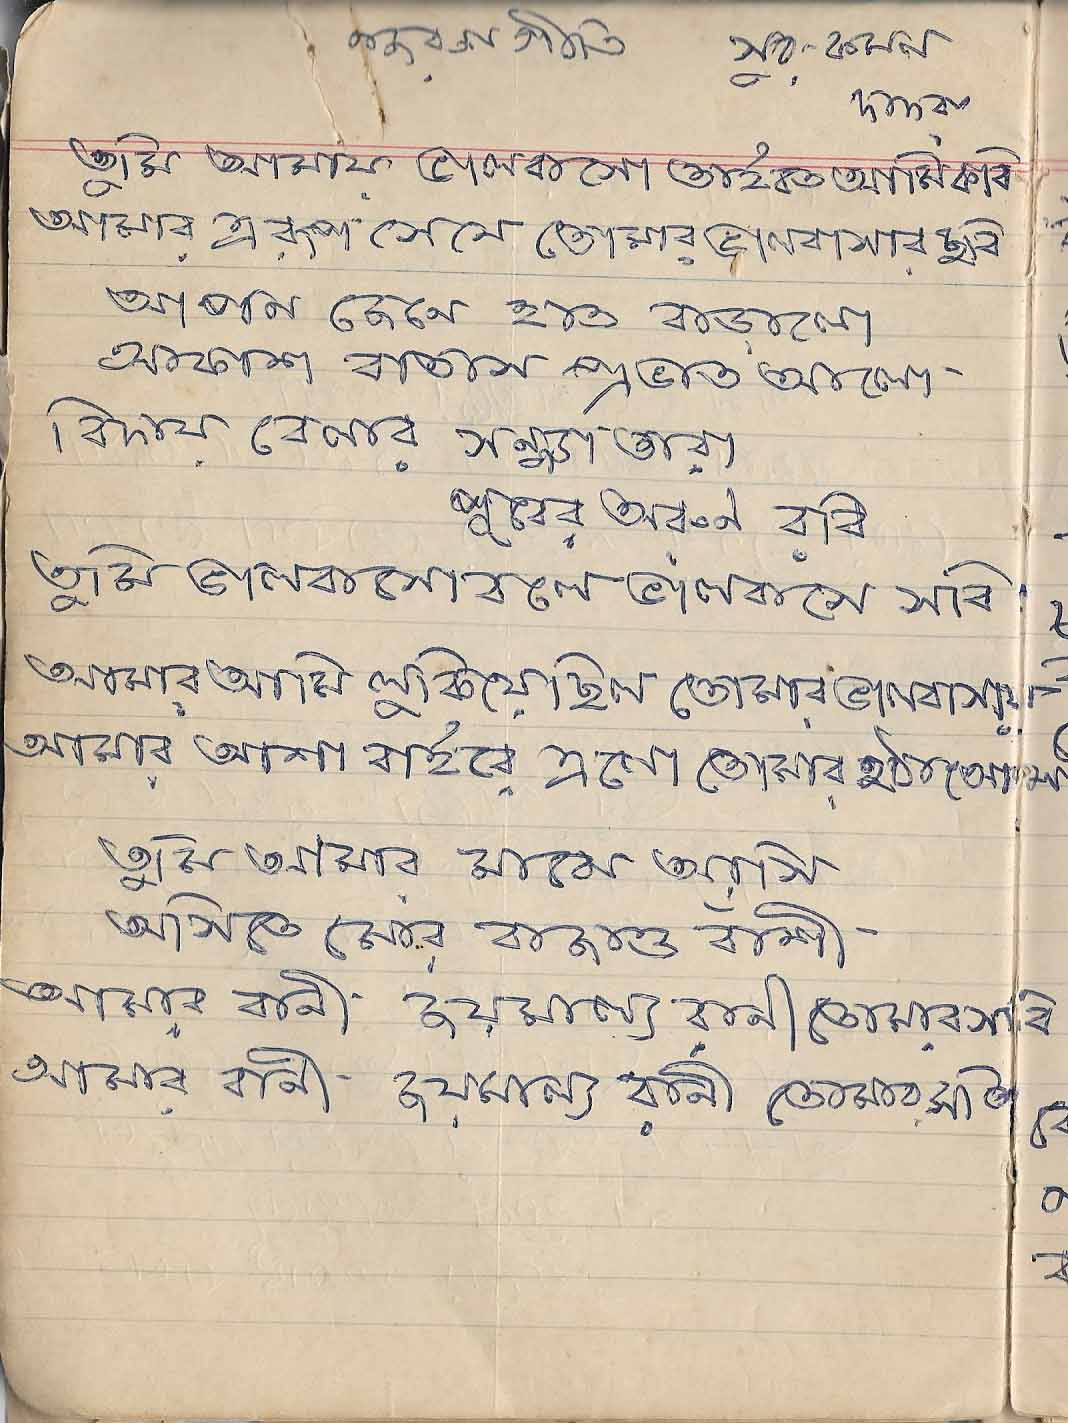 নজরুল গীতি সুর-কমল
দাদরা
তুমি আমায় ভালবাসো তাইত আমি কবি
আমার এরূপ সেযে তোমার ভালবাসার ছবি
আপন জেনে হাত বাড়ালো
আকাশ বাতাস প্রভাত আলো
বিদায় বেলার সন্ধ্যা তারা
পূবের অরুণ রবি
তুমি ভালবাসো বলে ভালবাসে সবি
আমার আমি লুকিয়েছিল তোমার ভালবাসায়
আমার আশা বাইরে এলো তোমার হঠাৎ আসায়
তুমি আমার মাঝে আসি
অসিতে মোর বাজাও বাঁশী
আমার বানী জয়মাল্য রানী তোমার সবি
আমার বানী জয়মাল্য রানী তোমার